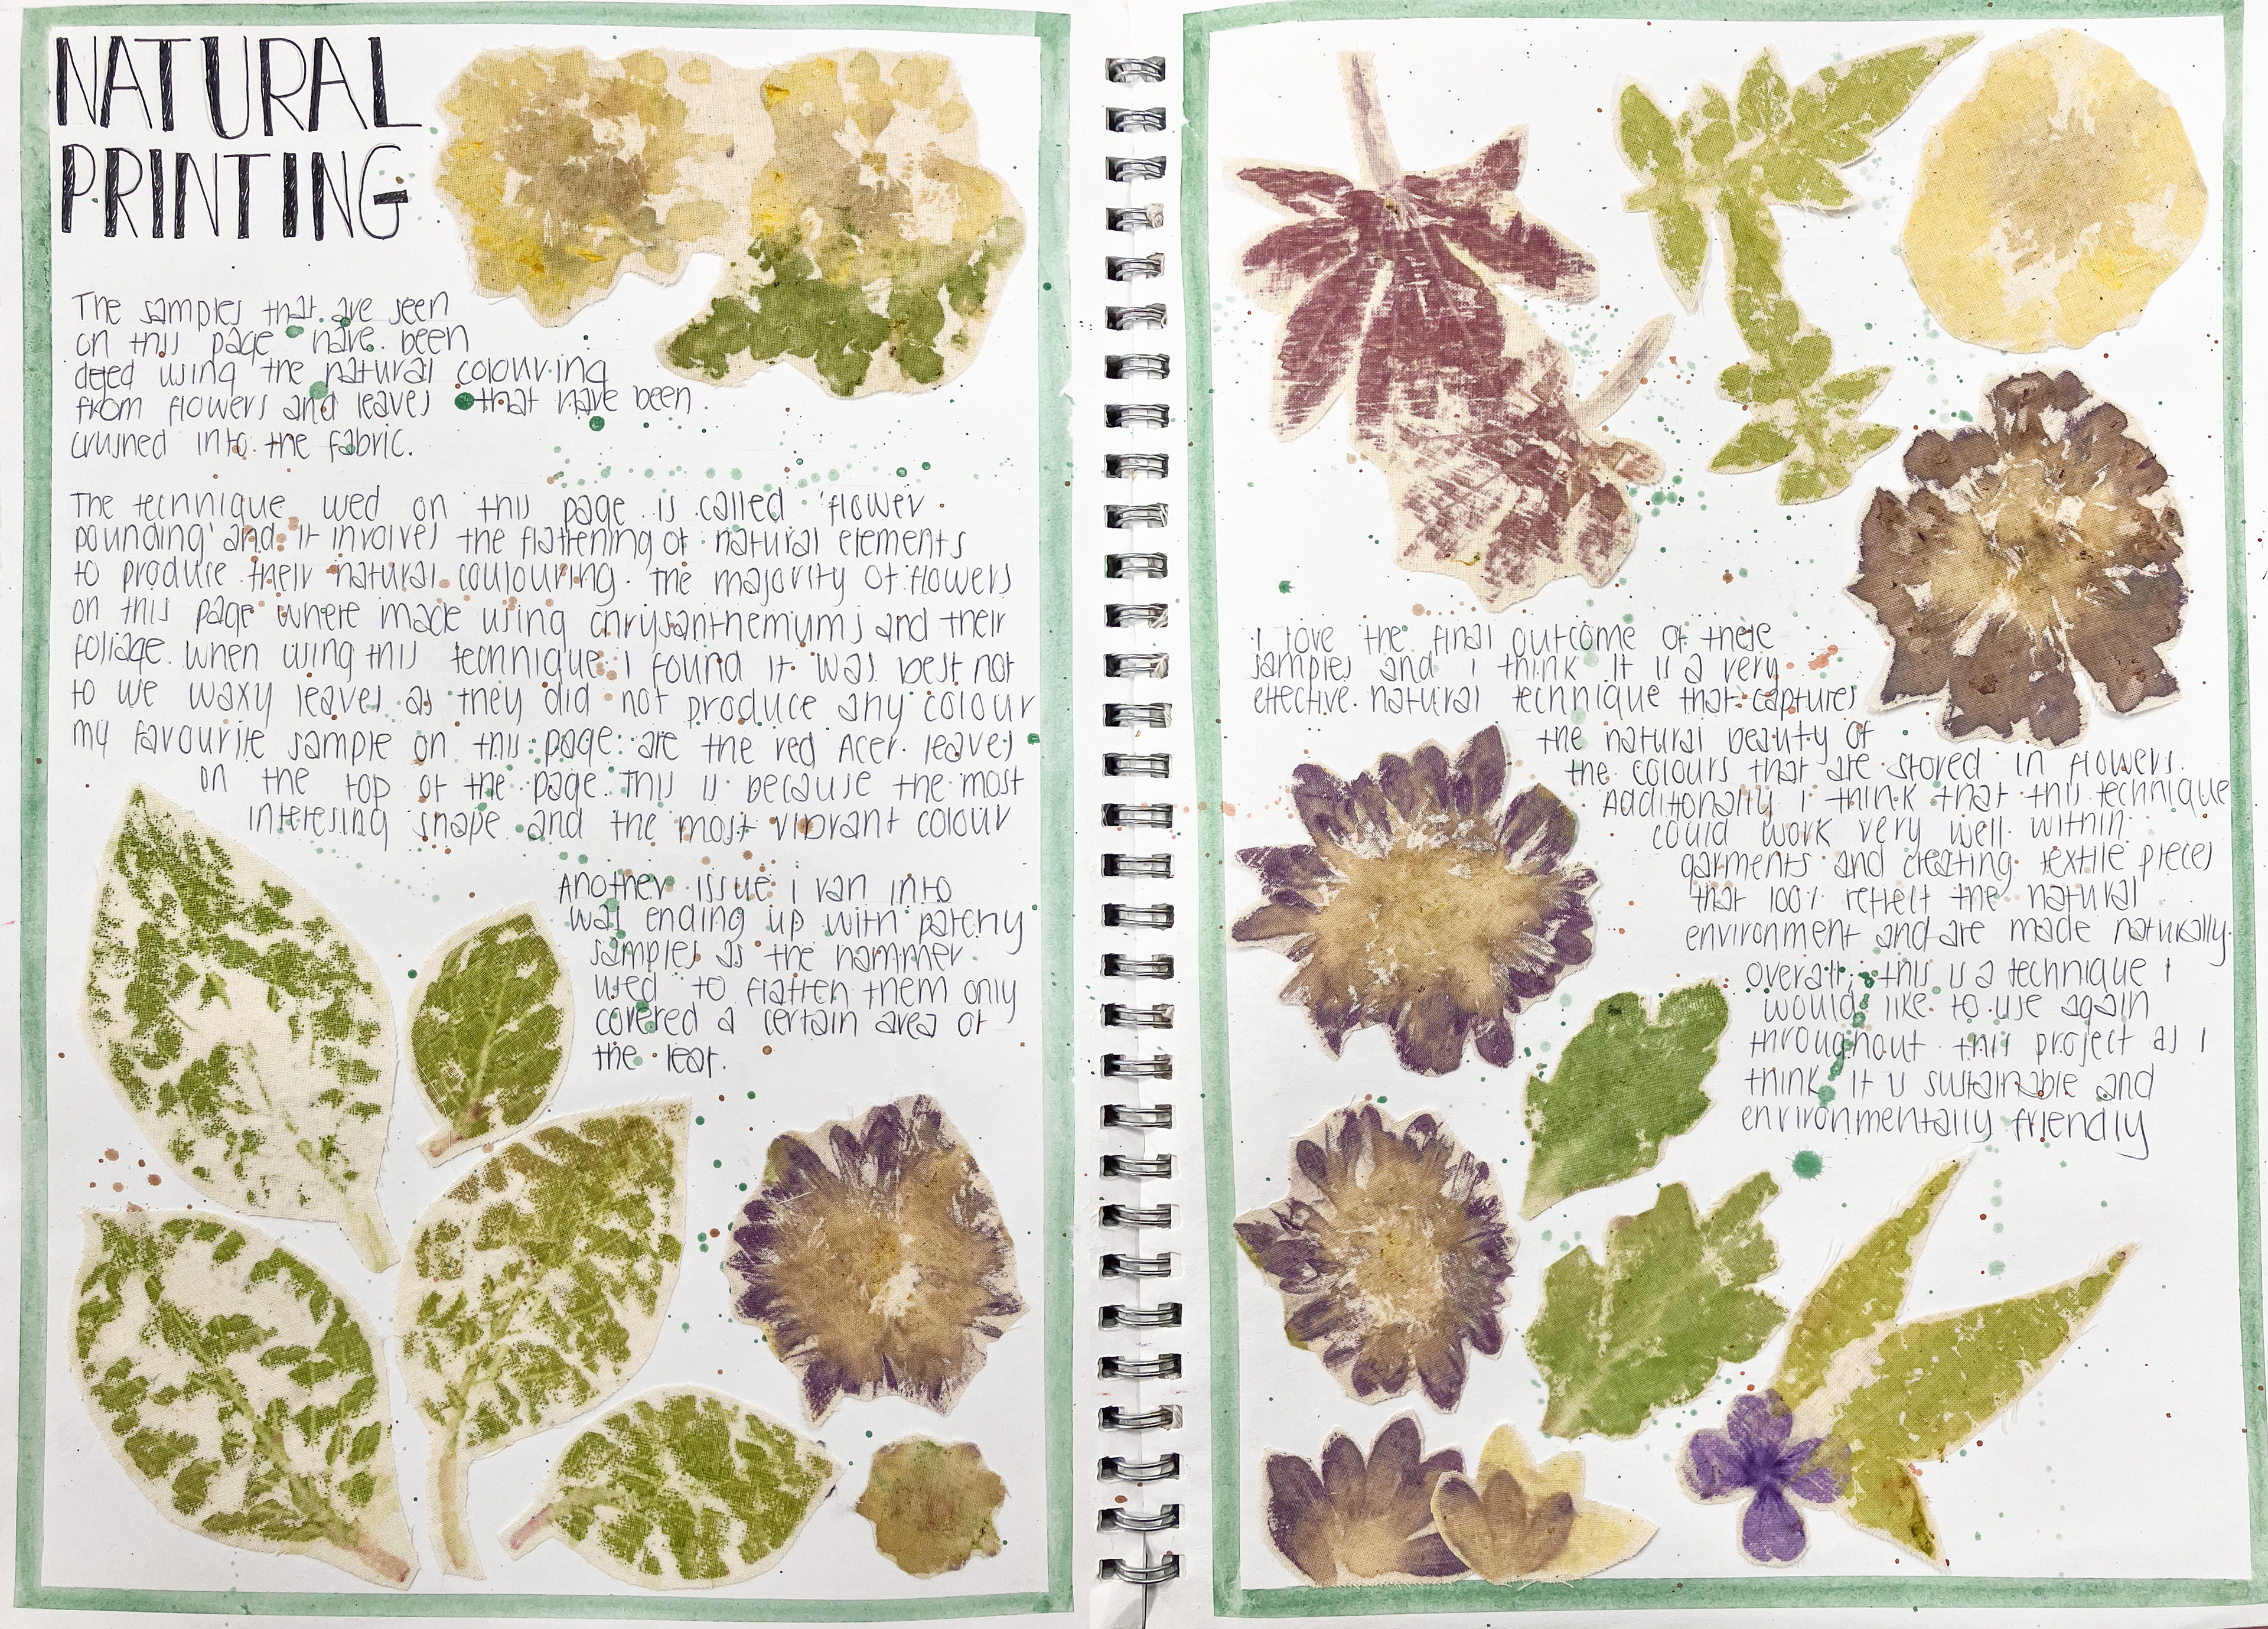 NATURAL
PRINTING
The samples that are seen
on this page have been
dyed using the natural colouring
from flowers and leaves that have been
crushed into the fabric.
The technique used on this page is called 'flower
pounding' and it involves the flattening of natural elements
to produce their natural coulouring. The majority of flowers
on this page where made using chrysanthemums and their
foliage. When using this technique i found it was best not
to use waxy leaves as they did not produce any colour
my favourite sample on this page are the red Acer leaves
on the top of the page. This is because the most
interesing shape and the most vibrant colour
Another issue i ran into
was ending up with patchy
samples as the hammer
used to flatten them only
covered a certain area of
the leaf.
I love the final outcome of these
samples and i think it is a very
effective natural technique that captures
the natural beauty of
the colours that are stored in flowers.
Additonally i think that this technique
could work very well within
garments and creating textile pieces
that 100% reflelt the natural
environment and are made naturally.
Overall, this is a technique i
would like to use again
throughout this project as i
think it is sustainable and
environmentally friendly